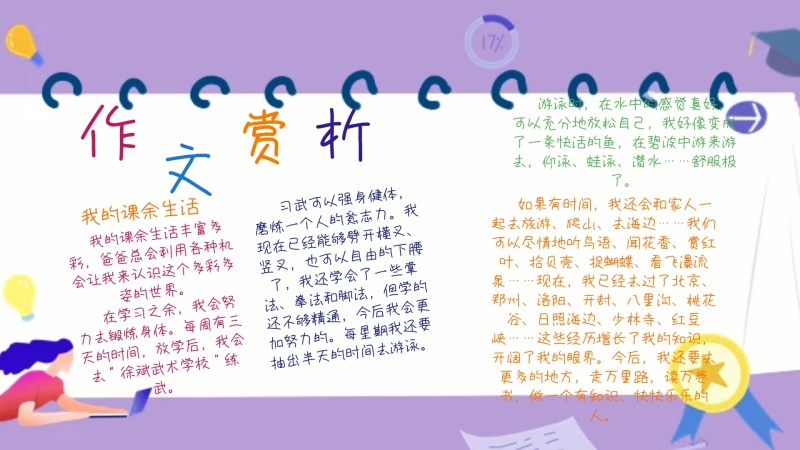 17%
作文赏析
我的课余生活
我的课余生活丰富多
彩，爸爸总会利用各种机
会让我来认识这个多彩多
姿的世界。
在学习之余，我会努
力去锻炼身体。每周有三
天的时间，放学后，我会
去“徐斌武术学校”练
武。
习武可以强身健体，
磨炼一个人的意志力。我
现在已经能够劈开横叉、
竖叉，也可以自由的下腰
了，我还学会了一些掌
法、拳法和脚法，但学的
还不够精通，今后我会更
加努力的。每星期我还要
抽出半天的时间去游泳。
游泳时，在水中的感觉真好，
可以充分地放松自己，我好像变成
了一条快活的鱼，在碧波中游来游
去，仰泳、蛙泳、潜水……舒服极
了。
如果有时间，我还会和家人一
起去旅游、爬山、去海边……我们
可以尽情地听鸟语、闻花香、赏红
叶、拾贝壳、捉蝴蝶、看飞瀑流
泉……现在，我已经去过了北京、
郑州、洛阳、开封、八里沟、桃花
谷、日照海边、少林寺、红豆
峡……这些经历增长了我的知识，
开阔了我的眼界。今后，我还要去
更多的地方，走万里路，读万卷
书，做一个有知识、快快乐乐的
人。